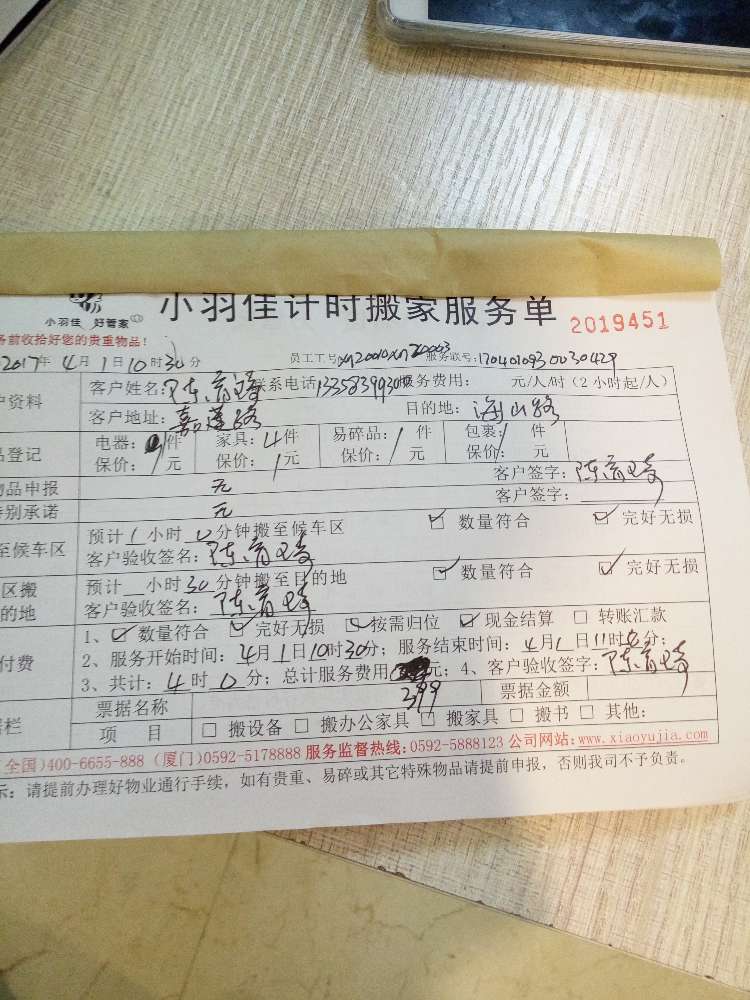 小羽佳 好管家
小羽佳计时搬家服务单 2019451
务前收拾好您的贵重物品!
2017年4月1日10时30分 员工工号 服务单号:
户资料 客户姓名:陈 联系电话 服务费用: 元/人/时(2小时起/人)
客户地址:嘉莲路 目的地:海山路
品登记 电器: 件 家具:4件 易碎品:/件 包裹:/件
保价:/元 保价:/元 保价:/元 保价:/元
客户签字:陈
物品申报 无 客户签字:
特别承诺 无
至候车区 预计1小时0分钟搬至候车区 ☑ 数量符合 ☑ 完好无损
客户验收签名:陈
区搬 预计 小时30分钟搬至目的地 ☑ 数量符合 ☑ 完好无损
的地 客户验收签名:陈
付费 1、☑ 数量符合 ☑ 完好无损 ☑ 按需归位 ☑ 现金结算 □ 转账汇款
2、服务开始时间:4月1日10时30分;服务结束时间:4月1日11时 分;
3、共计:4时0分;总计服务费用 元;4、客户验收签字:陈
399
票据名称 票据金额
栏 项 目 □ 搬设备 □ 搬办公家具 □ 搬家具 □ 搬书 □ 其他:
全国)400-6655-888 (厦门)0592-5178888 服务监督热线:0592-5888123 公司网站:www.xiaoyujia.com
示:请提前办理好物业通行手续,如有贵重、易碎或其它特殊物品请提前申报,否则我司不予负责。